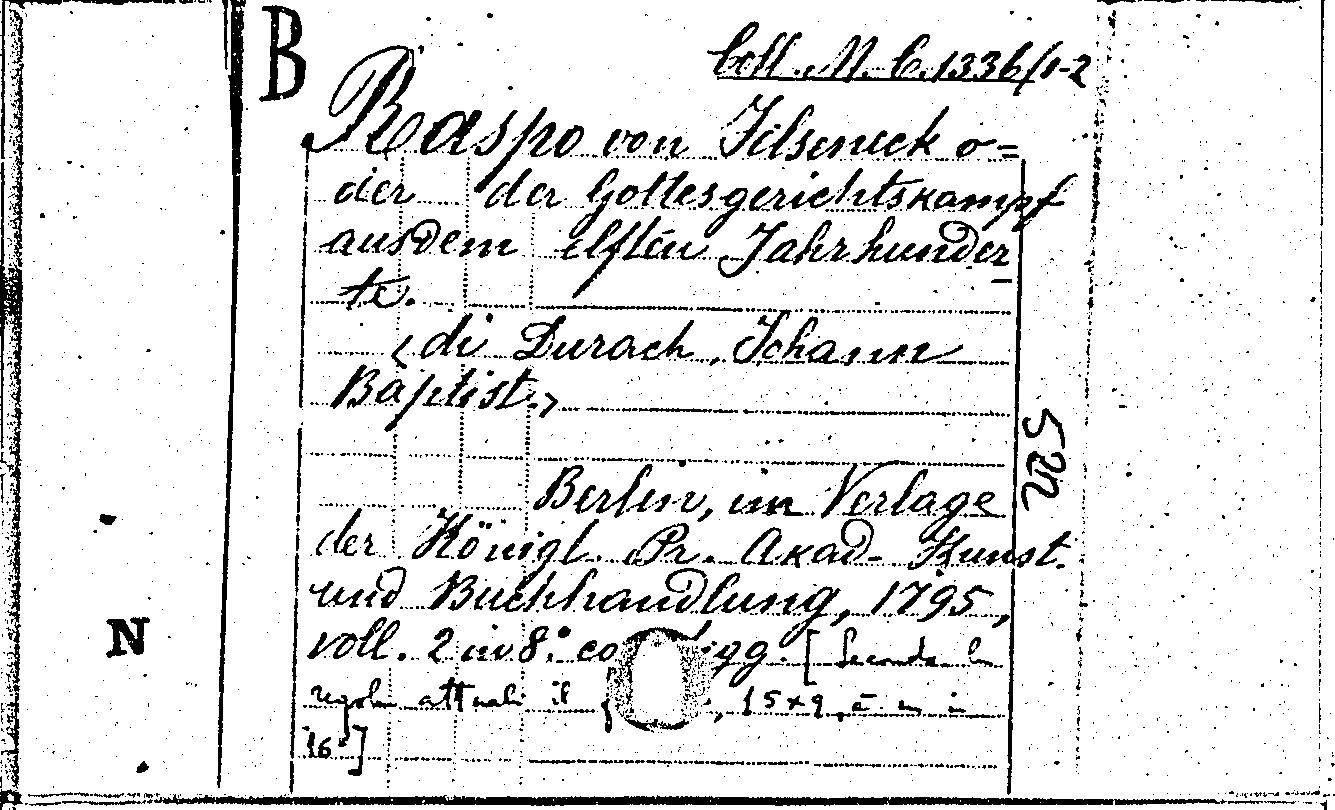 B
Coll. M. C. 1336/1-2
Raspo von Filseneck o=
der der Gottesgerichtskampf
ausdem elften Jahrhunder
te.
<di Durach, Johann
Baptist.>
522
Berlin, im Verlage
der Königl. Pr. Akad- Kunst.
und Buchhandlung, 1795,
voll. 2 in 8.° co gg. [Secondo le
N
regole attuali il 15x9, è un in
16°]